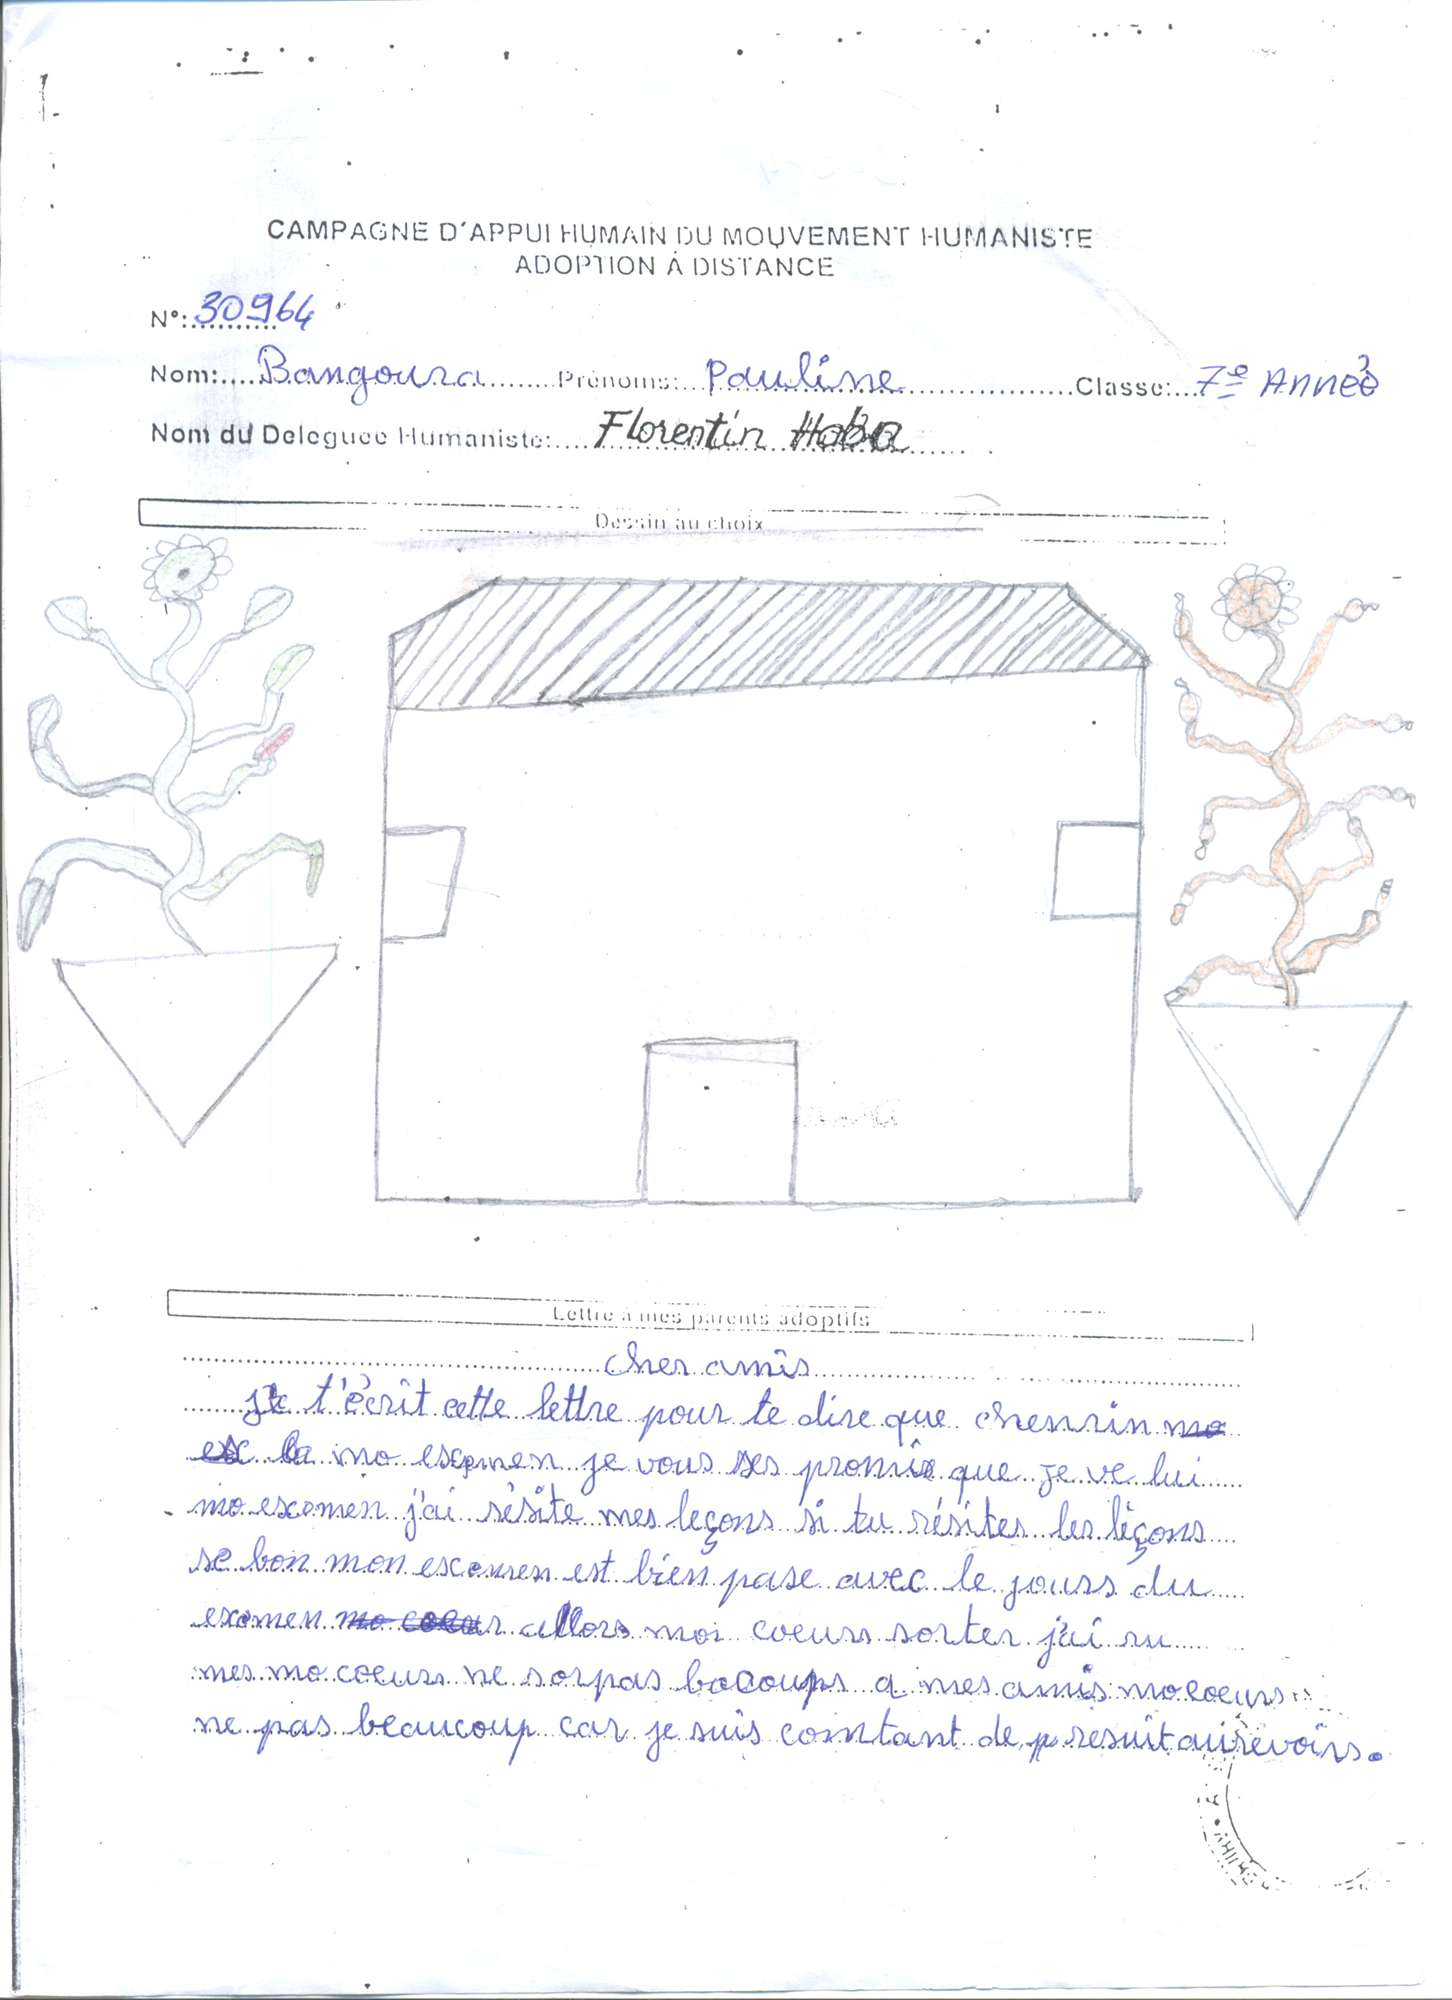 CAMPAGNE D'APPUI HUMAIN DU MOUVEMENT HUMANISTE
ADOPTION À DISTANCE
N°: 30964
Nom: Bangoura Prénoms: Pauline Classe: 7e Année
Nom du Deleguee Humaniste: Florentin Haba
Dessin au choix
Lettre a mes parents adoptifs
cher amis
je t'écrit cette lettre pour te dire que
la mo escemen je vous promis que je ve lui
mo escemen j'ai résite mes leçons si tu résites les leçons
se bon mon escemen est bien pase avec le jours du
examen allors moi coeurs sorter j'ai ru
mes mo coeurs ne sorpas bacoups a mes amis mo coeurs
ne pas beaucoup car je suis comtant de presuit aurevoirs.